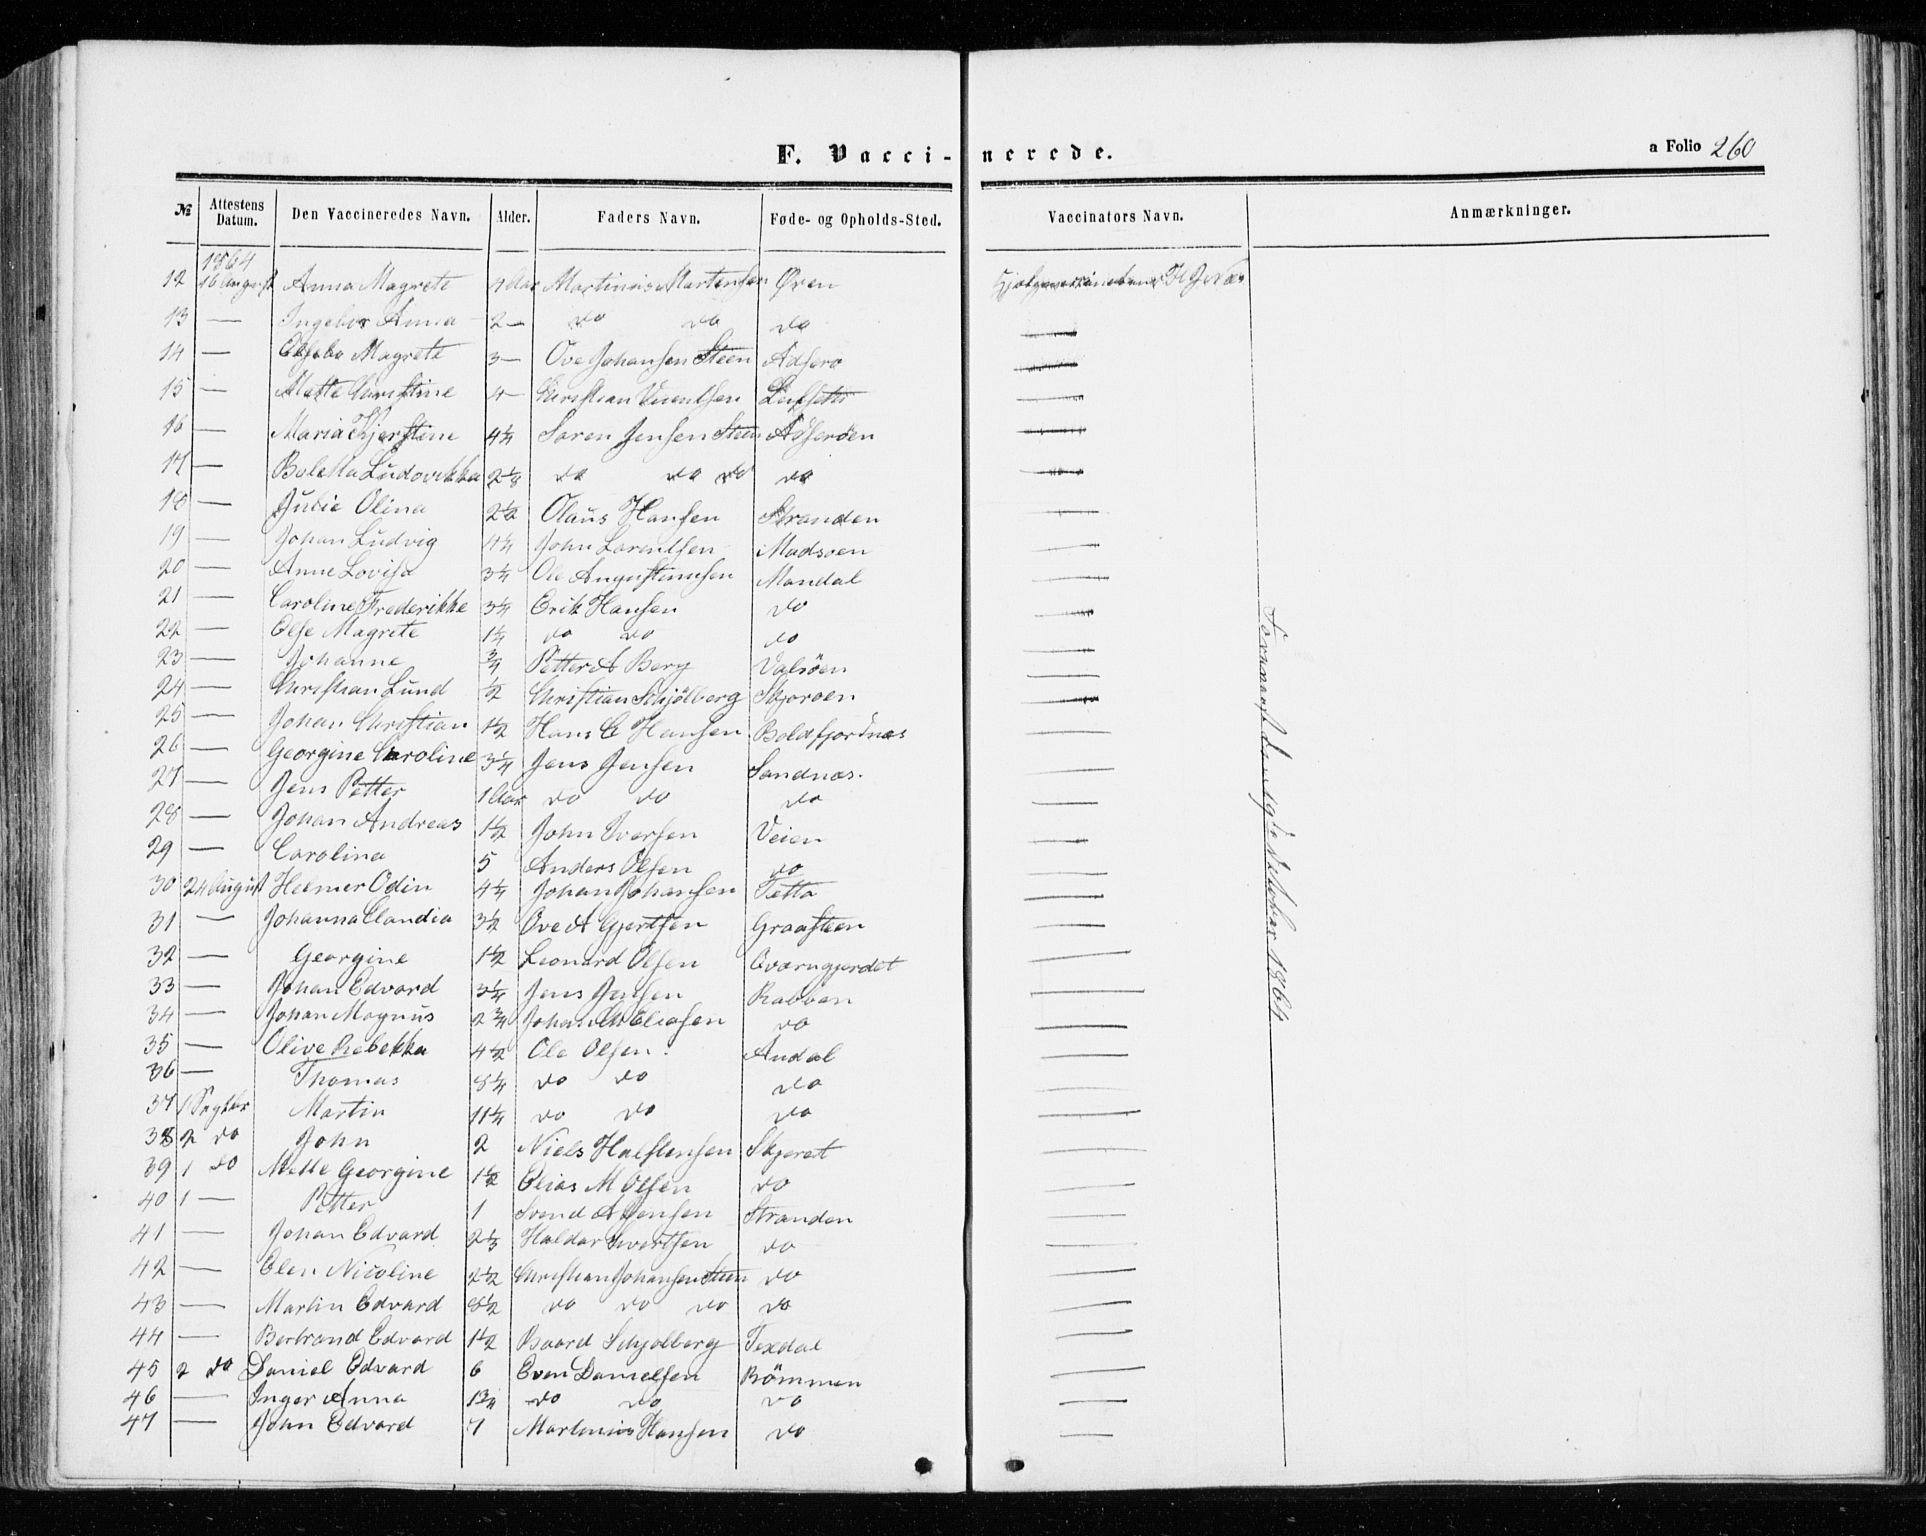 F. Vaccinerede.
a Folio 260
№ Attestens Datum. Den Vaccineredes Navn. Alder. Faders Navn. Føde- og Opholds-Sted. Vaccinators Navn. Anmærkninger.
1864
12 16 August Anna Magrete 4 Aar Martinus Martensen Øren
13 — Ingebor Anna 2 — do do do
14 — Magrete 3 — Ove Johansen Steen
15 — Mette Christine 4 — Christian
16 — Maria Kjerstine 4¼ Søren Jensen Steen
17 — Boletta Ludovikka do do do do
18 — Julie Olina 2½ Olaus Hansen Stranden
19 — Johan Ludvig 4¼ John Lorentsen Madsøen
20 — Anne Lovisa 3¼ Ole Augustinusen Mandal
21 — Caroline Frederikke 3¼ Erik Hansen do
22 — Else Magrete 1¼ do do do
23 — Johanne ¾ Petter A Berg Valsöen
24 — Christian Lund ½ Christian Schjölberg
25 — Johan Christian 1½ Hans C Hansen Boldfjordnæs
26 — Georgine Caroline 3¼ Jens Jensen Sandnæs.
27 — Jens Petter 1 Aar do do do
28 — Johan Andreas 1½ John Iversen Veien
29 — Carolina 5 Anders Olsen do
30 24 August Helmer Odin 4¼ Johan Johansen Tetta
31 — Johanna Claudia 3½ Ove A Gjertsen Graasteen
32 — Georgine 1½ Leonard Olsen Qværngjerdet
33 — Johan Edvard 3¼ Jens Jensen Rabben
34 — Johan Magnus 2¾ Johan M Eliasen do
35 — Olive Rebekka 4½ Ole Olsen. Andal
36 — Thomas 8¼ do do do
37 1 Septbr Martin 11¼ do do do
38 2 do John 2 Niels Halstensen Skjeret
39 1 do Mette Georgine 1½ Elias M Olsen do
40 1 — Petter 1 Svend A Jensen Stranden
41 — Johan Edvard 2⅓ Haldor Ivertsen do
42 — Elen Nicoline 2½ Christian Johansen Steen do
43 — Martin Edvard 8½ do do do do
44 — Bertrand Edvard 1½ Baard Schjølberg Texdal
45 2 do Daniel Edvard 6 Even Danielsen Bömmen
46 — Inger Anna 1¾ do do do
47 — John Edvard 7 Martenius Hansen do
October 1864